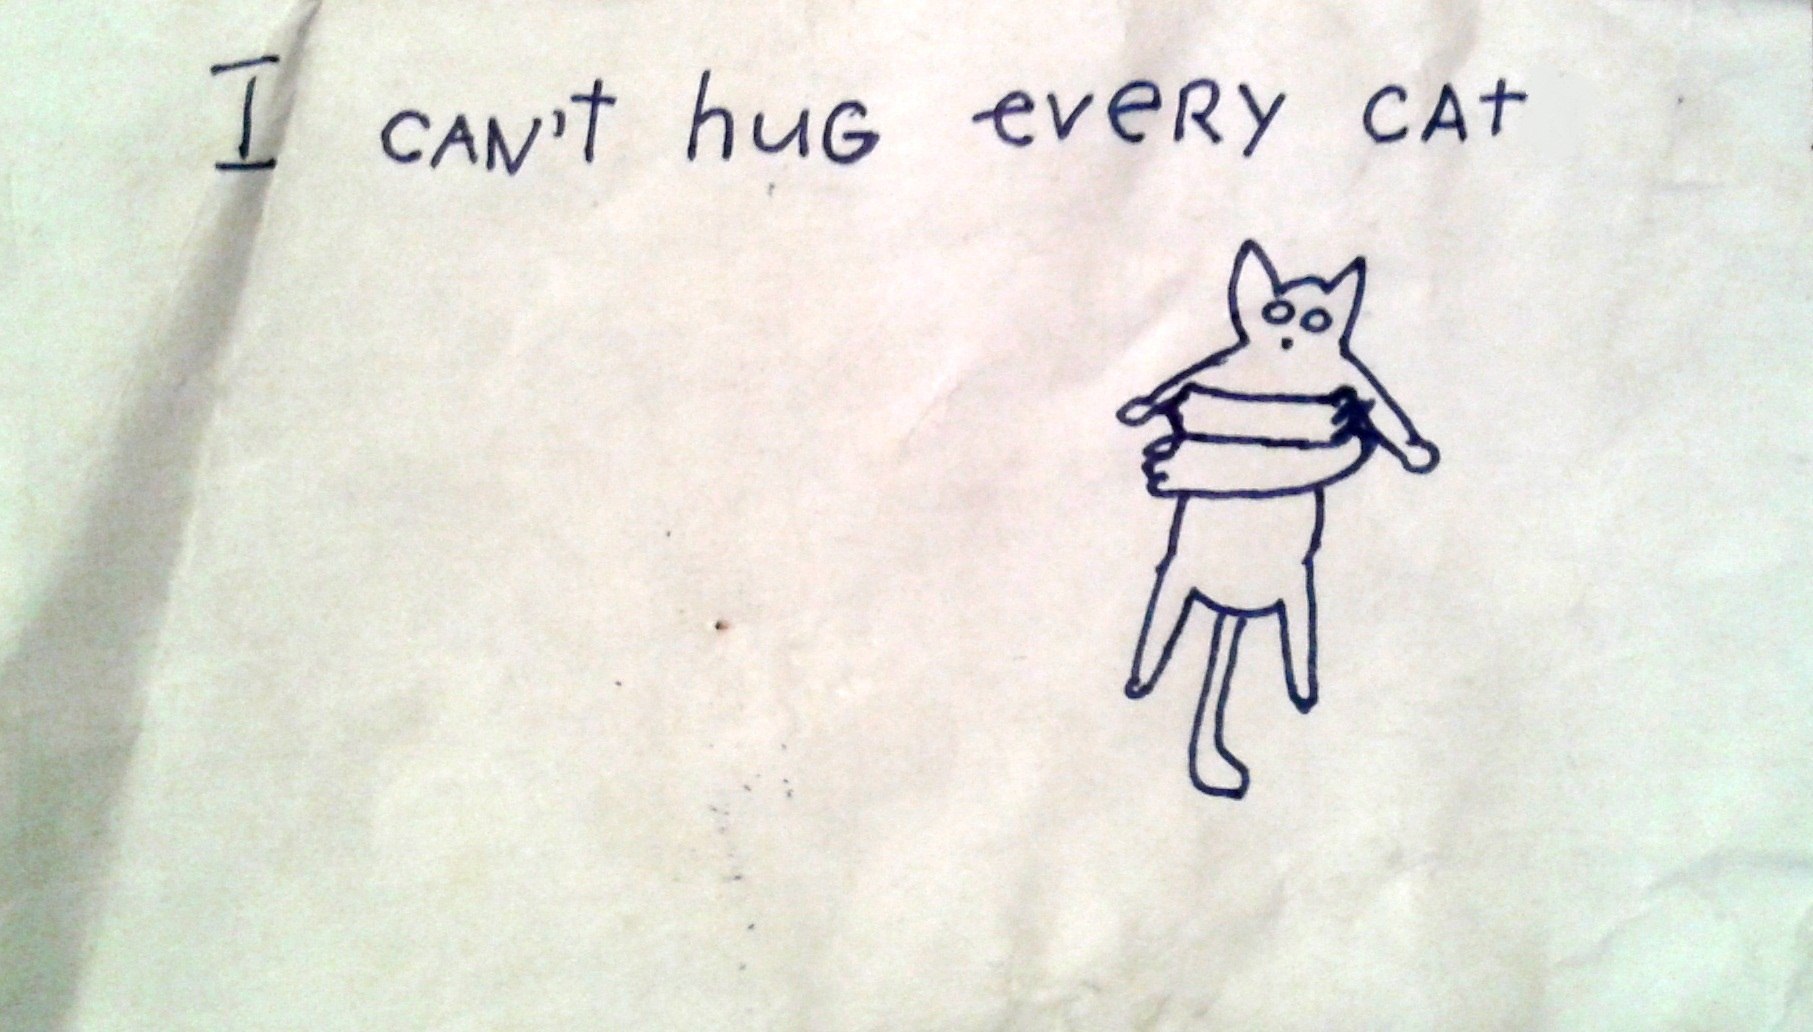 I CAN't huG eveRy CAt